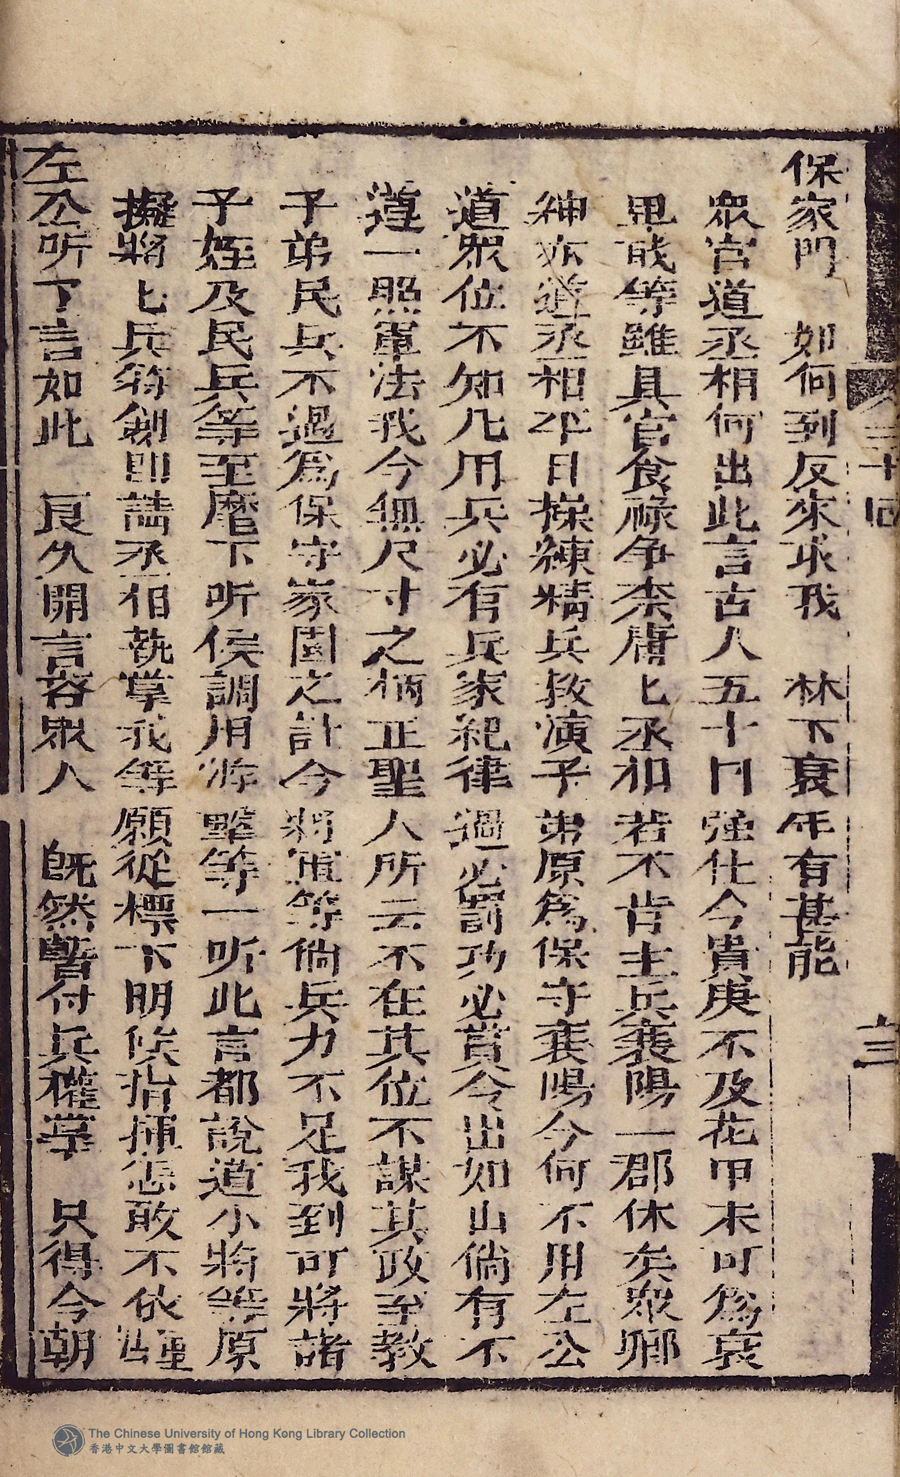 三十四
三
保家門 如何到反來求我 林下衰年有甚能
眾官道丞相何出此言古人五十曰強仕今貴庚不及花甲未可為衰
思成等雖具官食祿爭柰唐上丞相若不肯主兵襄陽一郡休矣眾鄉
紳亦道丞相平日操練精兵教演子弟原為保守襄陽今何不用左公
道眾位不知凡用兵必有兵家紀律過必罰功必賞令出如山倘有不
遵一照軍法我今無尺寸之柄正聖人所云不在其位不謀其政至教
子弟民兵不過為保守家園之計今將軍等倘兵力不足我到可將諸
子姪及民兵等至麾下听候調用游擊等一听此言都說道小將等原
擬將上兵符劍即請丞相執掌我等願從標下明候指揮怎敢不依
左公听了言如此 良久開言答眾人 既然暫付兵權掌 只得今朝
The Chinese University of Hong Kong Library Collection
香港中文大學圖書館館藏